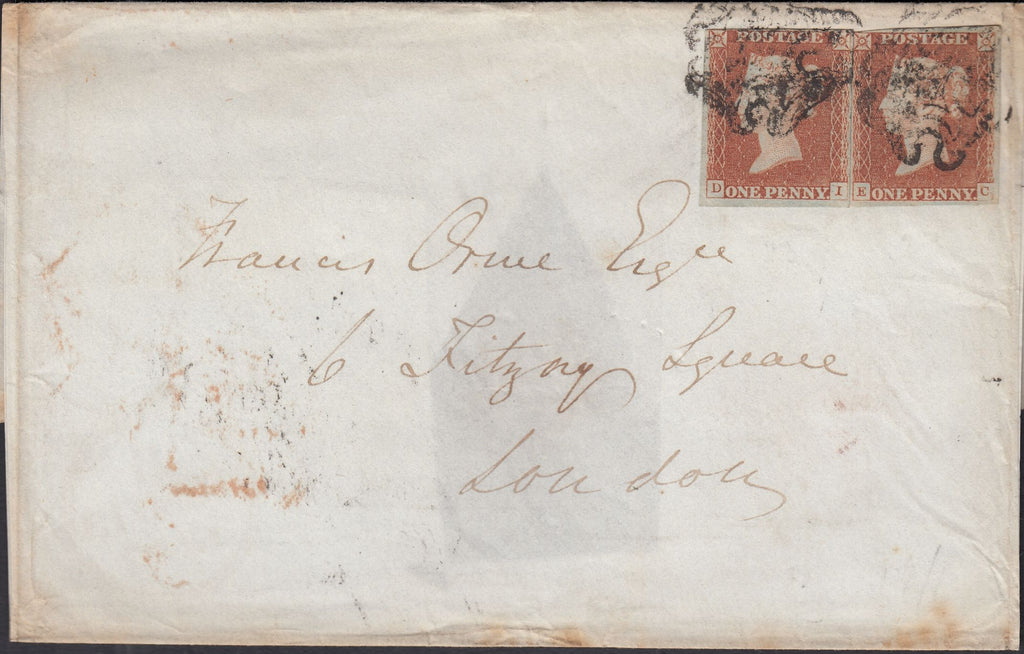 POSTAGE POSTAGE
D ONE PENNY. I E ONE PENNY. C
Francis Orme Esqre
6 Fitzroy Square
London